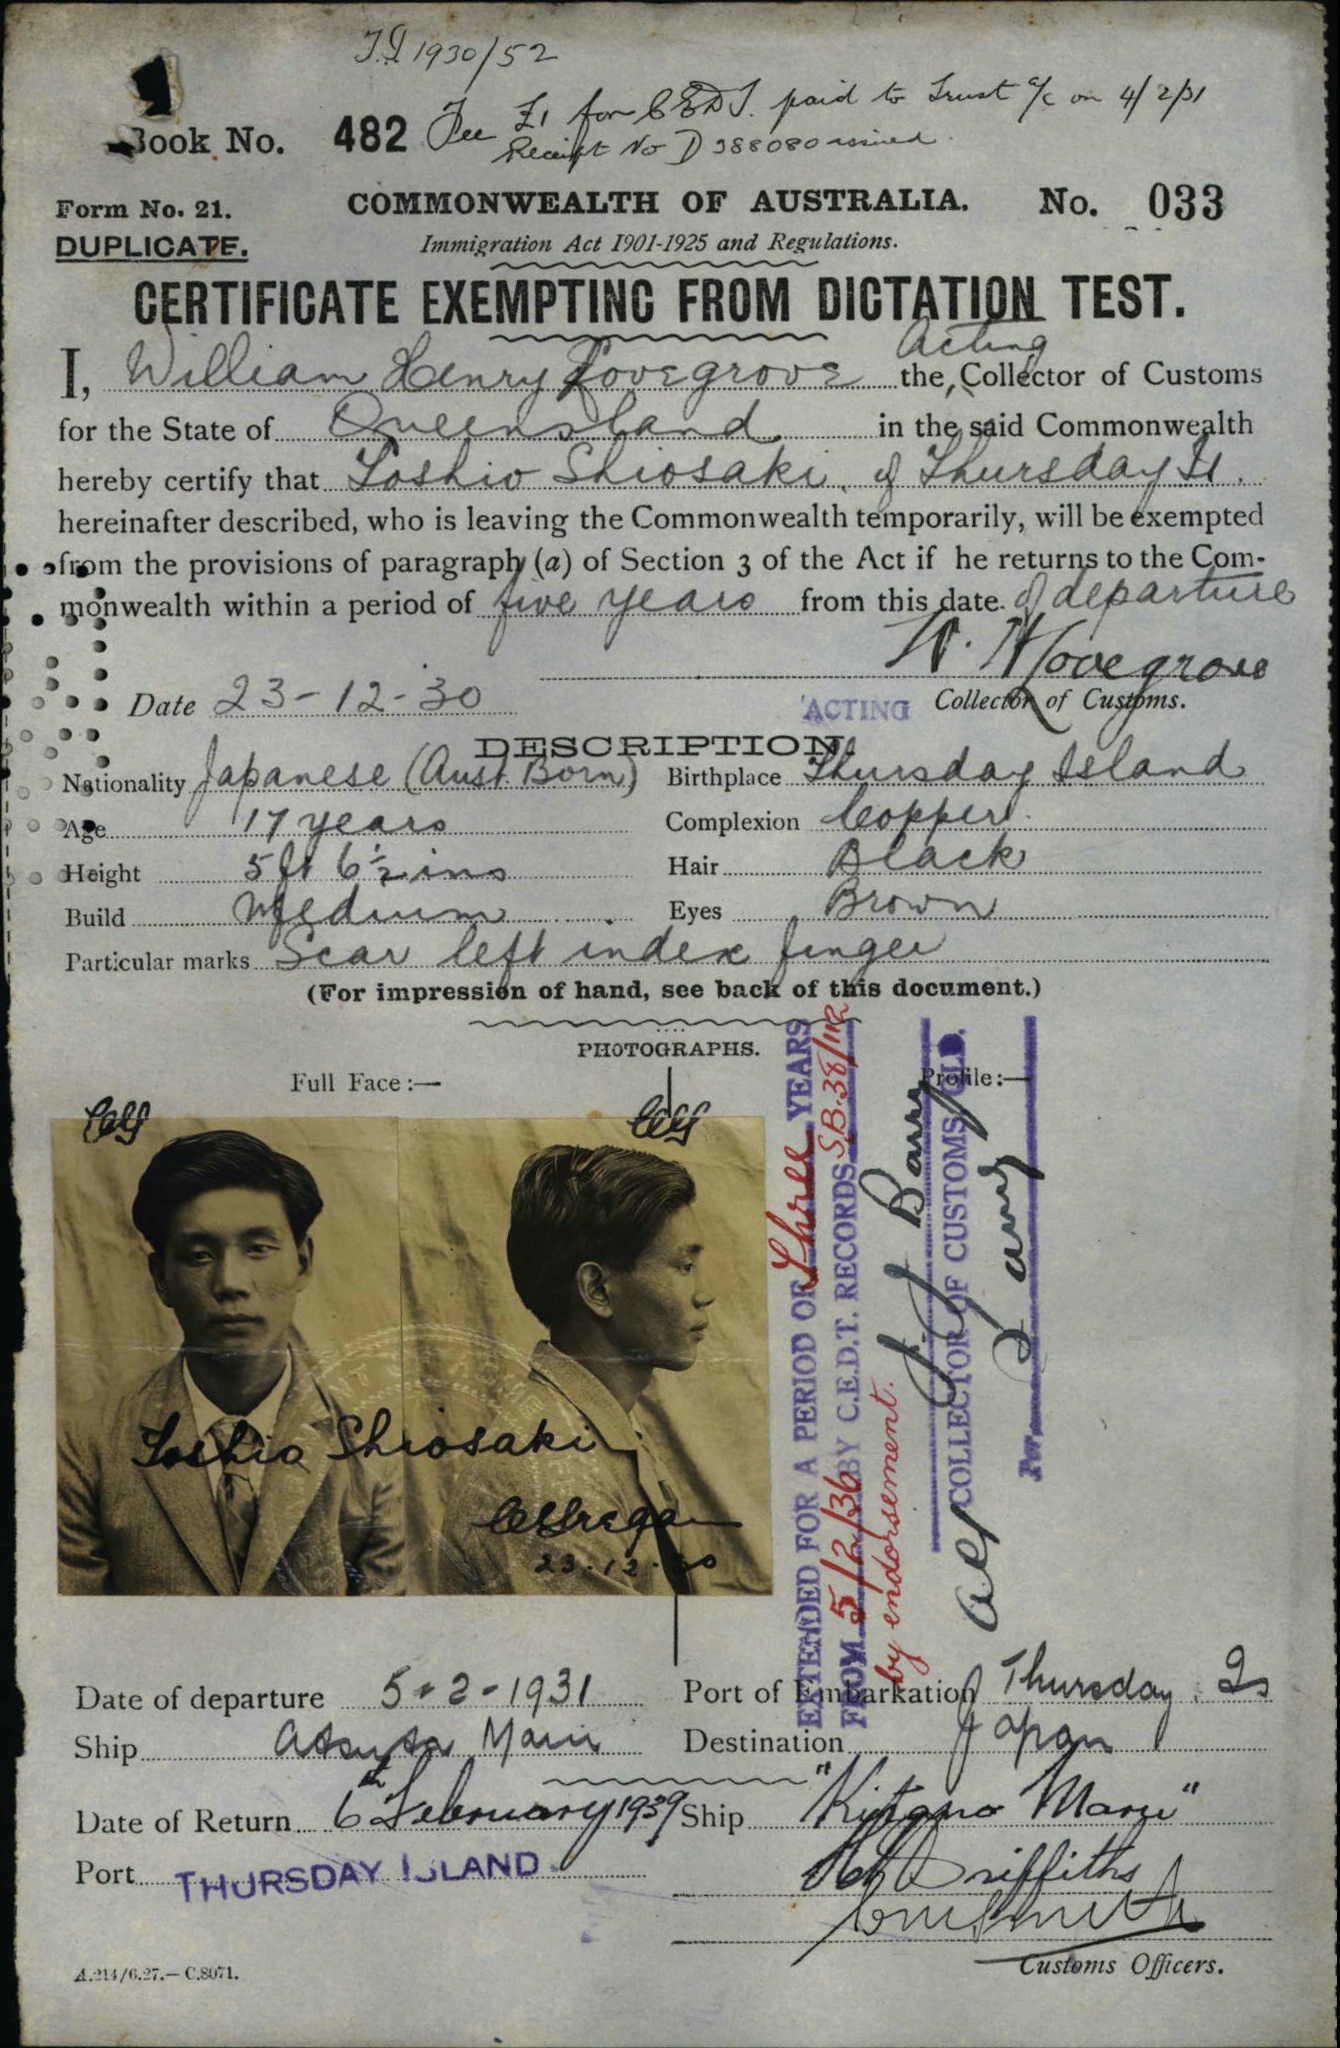 T.I 1930/52
Book No. 482 Fee £1 for CEDT. paid to Trust a/c on 4/2/31
Receipt No D 388080 issued
Form No. 21. COMMONWEALTH OF AUSTRALIA. No. 033
DUPLICATE. Immigration Act 1901-1925 and Regulations.
CERTIFICATE EXEMPTING FROM DICTATION TEST.
I, William Henry Lovegrove the Acting Collector of Customs
for the State of Queensland in the said Commonwealth
hereby certify that Toshio Shiosaki, of Thursday Is.
hereinafter described, who is leaving the Commonwealth temporarily, will be exempted
from the provisions of paragraph (a) of Section 3 of the Act if he returns to the Com-
monwealth within a period of five years from this date of departure
W. H Lovegrove
Date 23-12-30 ACTING Collector of Customs.
DESCRIPTION.
Nationality Japanese (Aust. Born) Birthplace Thursday Island
Age 17 years Complexion Copper.
Height 5 ft 6½ ins Hair Black
Build Medium Eyes Brown
Particular marks Scar left index finger
(For impression of hand, see back of this document.)
PHOTOGRAPHS.
Full Face:— Profile:—
Toshio Shiosaki
23.12.30
EXTENDED FOR A PERIOD OF Three YEARS
FROM 5/2/36 BY C.E.D.T. RECORDS S.B. 38/112
by endorsement.
J. J Barry
COLLECTOR OF CUSTOMS, QLD.
Per
Date of departure 5-2-1931 Port of Embarkation Thursday Is
Ship Atsuta Maru Destination Japan
Date of Return 6th February 1939 Ship "Kitano Maru"
Port THURSDAY ISLAND Griffiths
Smith
Customs Officers.
A.214/6.27.—C.8071.